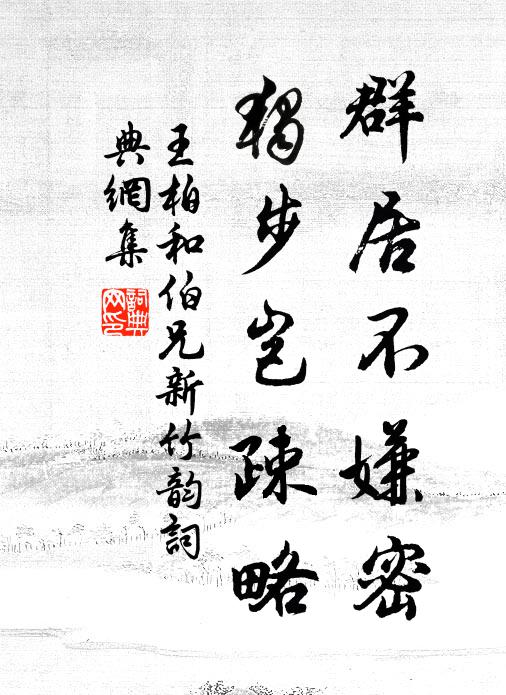 群居不嫌密
獨步豈疎略
王柏和伯兄新竹韵詞
典網集
詞典
网印